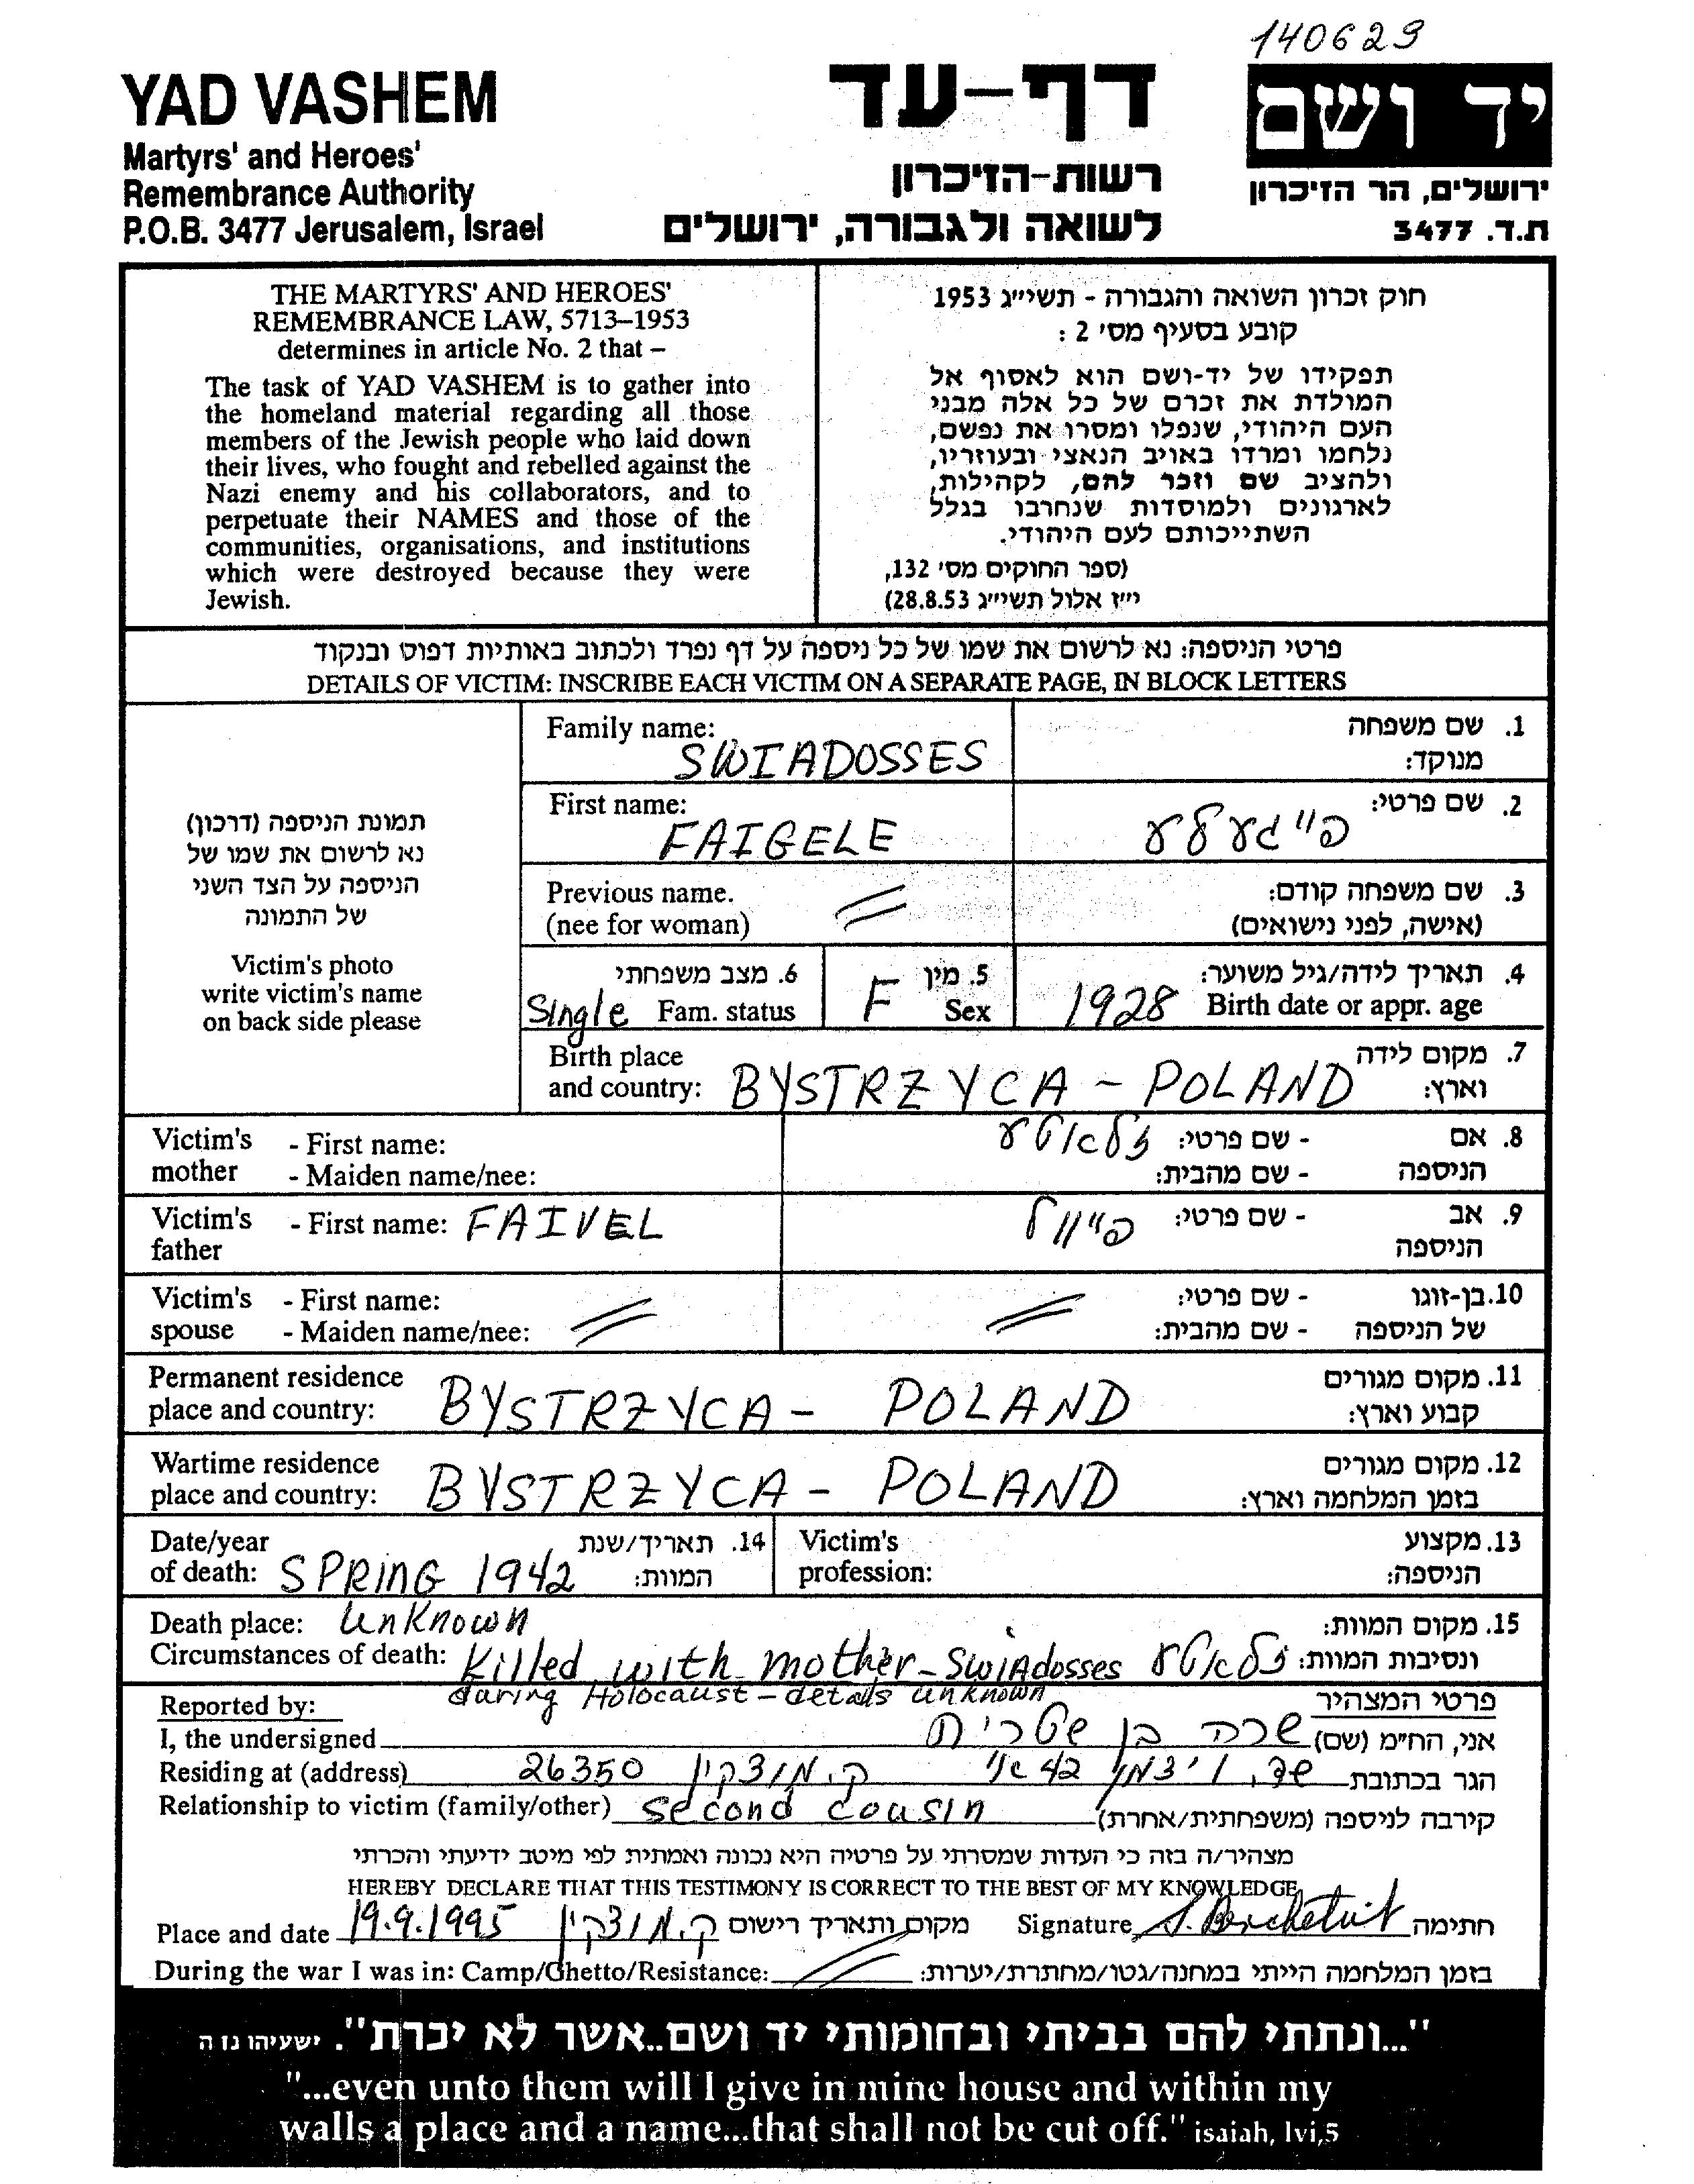 140629
YAD VASHEM
Martyrs' and Heroes'
Remembrance Authority
P.O.B. 3477 Jerusalem, Israel
דף-עד
רשות-הזיכרון
לשואה ולגבורה, ירושלים
יד ושם
ירושלים, הר הזיכרון
ת.ד. 3477
THE MARTYRS' AND HEROES'
REMEMBRANCE LAW, 5713–1953
determines in article No. 2 that –
The task of YAD VASHEM is to gather into
the homeland material regarding all those
members of the Jewish people who laid down
their lives, who fought and rebelled against the
Nazi enemy and his collaborators, and to
perpetuate their NAMES and those of the
communities, organisations, and institutions
which were destroyed because they were
Jewish.
חוק זכרון השואה והגבורה - תשי"ג 1953
קובע בסעיף מס' 2 :
תפקידו של יד-ושם הוא לאסוף אל
המולדת את זכרם של כל אלה מבני
העם היהודי, שנפלו ומסרו את נפשם,
נלחמו ומרדו באויב הנאצי ובעוזריו,
ולהציב שם וזכר להם, לקהילות,
לארגונים ולמוסדות שנחרבו בגלל
השתייכותם לעם היהודי.
(ספר החוקים מס' 132,
י"ז אלול תשי"ג 28.8.53)
פרטי הניספה: נא לרשום את שמו של כל ניספה על דף נפרד ולכתוב באותיות דפוס ובנקוד
DETAILS OF VICTIM: INSCRIBE EACH VICTIM ON A SEPARATE PAGE, IN BLOCK LETTERS
תמונת הניספה (דרכון)
נא לרשום את שמו של
הניספה על הצד השני
של התמונה
Victim's photo
write victim's name
on back side please
Family name: SWIADOSSES
1. שם משפחה
מנוקד:
First name: FAIGELE
2. שם פרטי: פייגעלע
Previous name.
(nee for woman)
3. שם משפחה קודם:
(אישה, לפני נישואים)
6. מצב משפחתי
Single Fam. status
5. מין
F Sex
4. תאריך לידה/גיל משוער:
1928 Birth date or appr. age
Birth place
and country: BYSTRZYCA - POLAND
7. מקום לידה
וארץ:
Victim's mother - First name:
- Maiden name/nee:
8. אם - שם פרטי: זלאטע
הניספה - שם מהבית:
Victim's father - First name: FAIVEL
9. אב - שם פרטי: פייוול
הניספה
Victim's spouse - First name:
- Maiden name/nee:
10. בן-זוגו - שם פרטי:
של הניספה - שם מהבית:
Permanent residence
place and country: BYSTRZYCA - POLAND
11. מקום מגורים
קבוע וארץ:
Wartime residence
place and country: BYSTRZYCA - POLAND
12. מקום מגורים
בזמן המלחמה וארץ:
Date/year
of death: SPRING 1942
14. תאריך/שנת
המוות:
Victim's
profession:
13. מקצוע
הניספה:
Death place: Unknown
15. מקום המוות:
Circumstances of death: Killed with mother - Swiadosses זלאטע ונסיבות המוות:
during Holocaust - details unknown
Reported by: פרטי המצהיר
I, the undersigned שרה בן שטרית אני, הח"מ (שם)
Residing at (address) שד. ויצמן 42 ק. מוצקין 26350 הגר בכתובת
Relationship to victim (family/other) second cousin קירבה לניספה (משפחתית/אחרת)
מצהיר/ה בזה כי העדות שמסרתי על פרטיה היא נכונה ואמתית לפי מיטב ידיעתי והכרתי
HEREBY DECLARE THAT THIS TESTIMONY IS CORRECT TO THE BEST OF MY KNOWLEDGE
Place and date 19.9.1995 ק. מוצקין מקום ותאריך רישום Signature חתימה
During the war I was in: Camp/Ghetto/Resistance: בזמן המלחמה הייתי במחנה/גטו/מחתרת/יערות:
"...ונתתי להם בביתי ובחומותי יד ושם..אשר לא יכרת". ישעיהו נו ה
"...even unto them will I give in mine house and within my
walls a place and a name...that shall not be cut off." isaiah, lvi,5